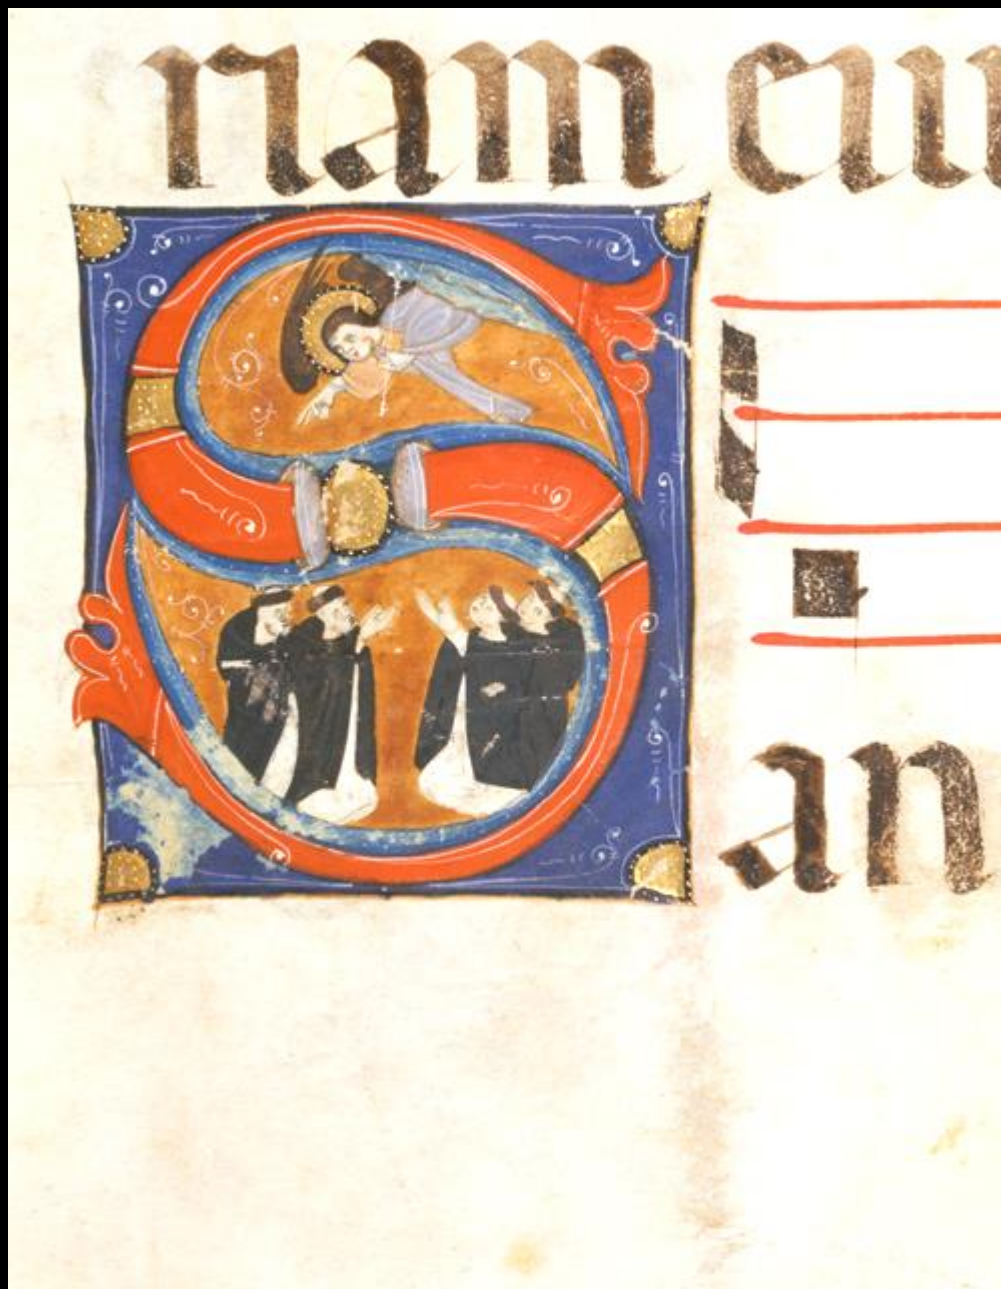 riam eiu
San